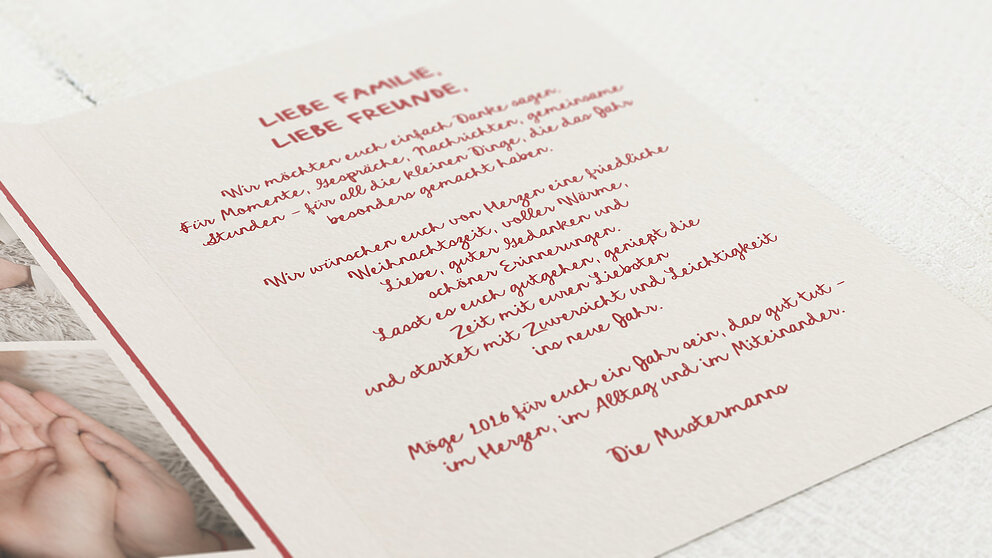 LIEBE FAMILIE,
LIEBE FREUNDE,
Wir möchten euch einfach Danke sagen.
Für Momente, Gespräche, Nachrichten, gemeinsame
Stunden – für all die kleinen Dinge, die das Jahr
besonders gemacht haben.
Wir wünschen euch von Herzen eine friedliche
Weihnachtszeit, voller Wärme,
Liebe, guter Gedanken und
schöner Erinnerungen.
Lasst es euch gutgehen, genießt die
Zeit mit euren Liebsten
und startet mit Zuversicht und Leichtigkeit
ins neue Jahr.
Möge 2026 für euch ein Jahr sein, das gut tut –
im Herzen, im Alltag und im Miteinander.
Die Mustermanns